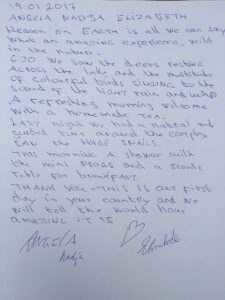 19.01.2017
ANGELA NADJA ELIZABETH
Heaven on EARTH is all we can say
What an amazing experience, wild
in the nature.
6:30 We saw the deers resting
across the lake and the multitude
of colourful birds singing to the
sound of the light rain and wind
A refreshing morning welcome
with a homemade tea.
Last night we had a natural and
guided tour around the complex
saw the huge snails.
This morning a shower with
the mini frogs and a scenic
table for breakfast.
THANK YOU - This is our first
day in your country and we
will tell the world how
amazing it is
Angela
Nadja